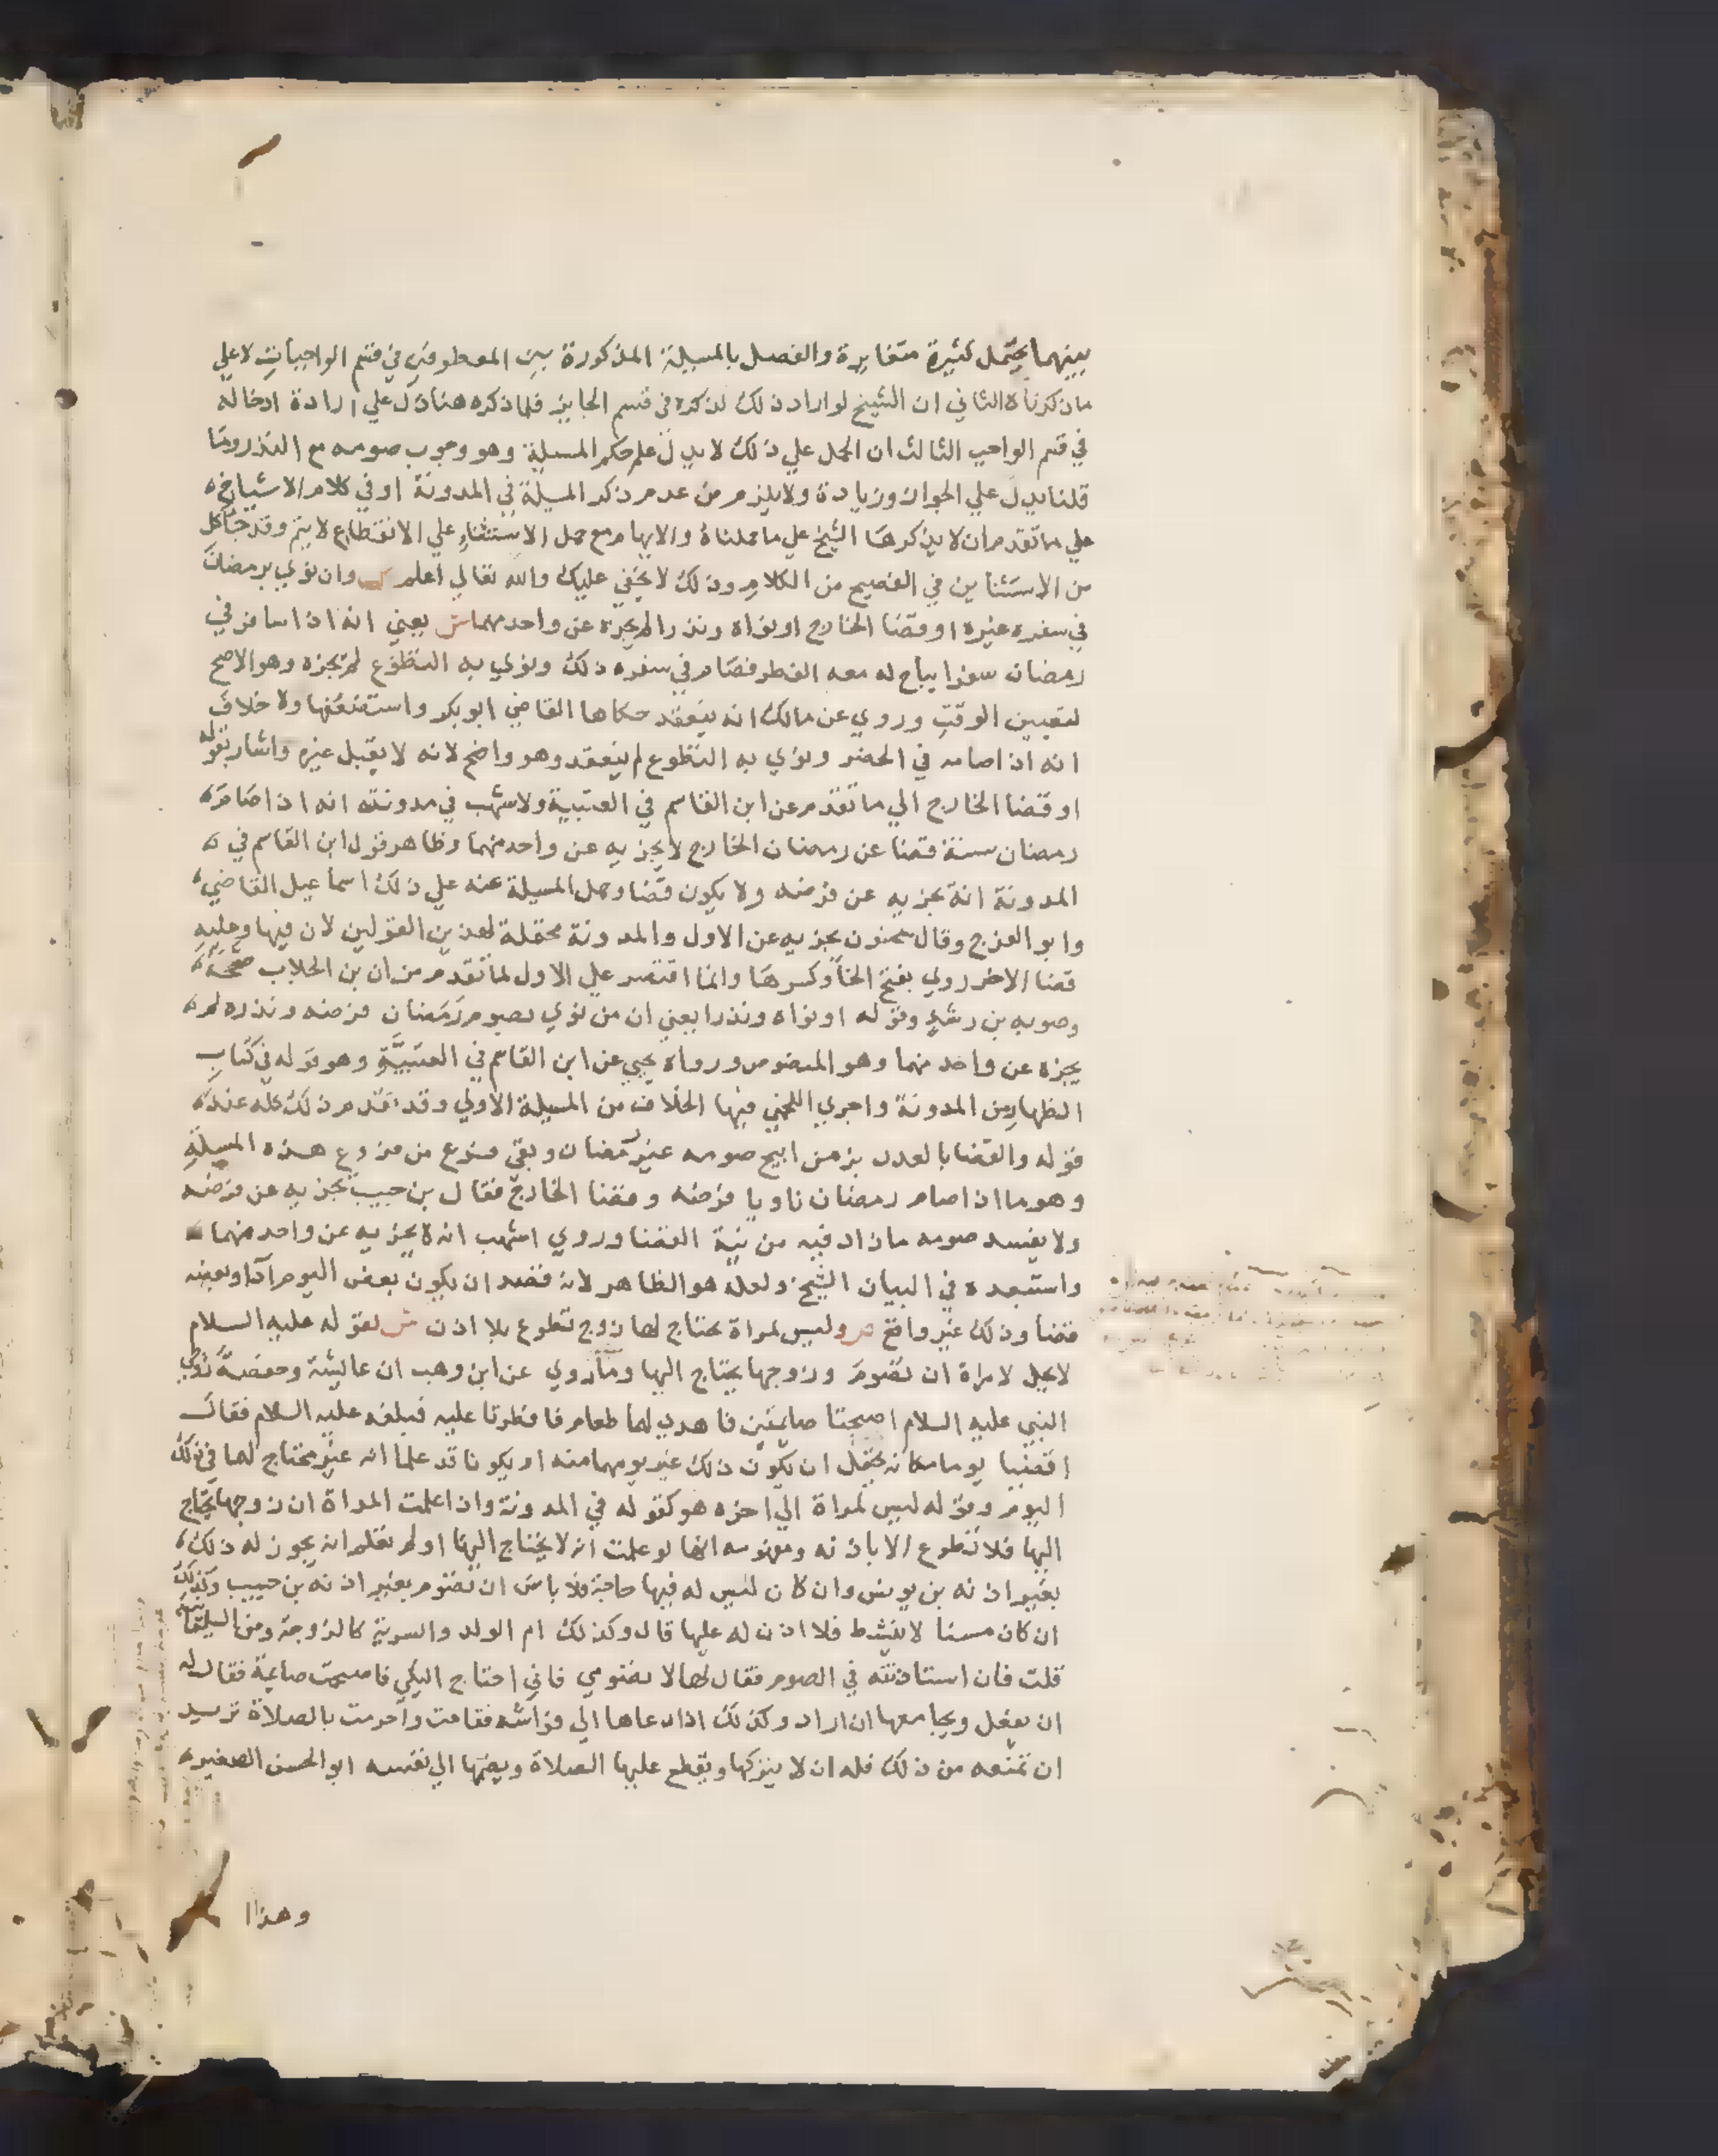 بينهما بجمل كثيرة متغايرة والفصل بالمسيلة المذكورة بين المعطوفين في قسم الواجبات لا علي
ما ذكرناه الثاني ان الشيخ لو اراد ذلك لذكره في قسم الجايز فلما ذكره هنا دل علي ارادة ادخاله
في قسم الواجب الثالث ان الحمل علي ذلك لا يدل علي حكم المسيلة وهو وجوب صومه مع النذر وما
قلنا يدل علي الجواز وزيادة ولا يلزم من عدم ذكر المسيلة في المدونة او في كلام الاشياخ
علي ما تقدم ان لا يذكرها الشيخ علي ما حملناه والايهام مع حمل الاستثناء علي الانقطاع لا يتم وقد جا كل
من الاستثنا ين في الفصيح من الكلام وذلك لا يخفي عليك والله تعالي اعلم وان نوي برمضان
في سفره غيره او قضا الخارج او نواه ونذرا لم يجزه عن واحد منهما ش يعني انه اذا سافر في
رمضان سفرا يباح له معه الفطر فصام في سفره ذلك ونوي به التطوع لم يجزه وهو الاصح
لتعيين الوقت وروي عن مالك انه ينعقد حكاها القاضي ابو بكر واستضعفها ولا خلاف
انه اذا صامه في الحضر ونوي به التطوع لم ينعقد وهو واضح لانه لا يقبل غيره واشار بقوله
او قضا الخارج الي ما تقدم عن ابن القاسم في العتبية ولاشهب في مدونته انه اذا صام
رمضان سنة قضا عن رمضان الخارج لا يجزيه عن واحد منهما وظاهر قول ابن القاسم في
المدونة انه يجزيه عن فرضه ولا يكون قضا وحمل المسيلة عنه علي ذلك اسماعيل القاضي
وابو الفرج وقال سحنون يجزيه عن الاول والمدونة محتملة لهذين القولين لان فيها وعليه
قضا الاخر روي بفتح الخا وكسرها وانما اقتصر علي الاول لما تقدم من ان بن الجلاب صححه
وصوبه بن رشد وقوله او نواه ونذرا يعني ان من نوي بصوم رمضان فرضه ونذره لم
يجزه عن واحد منهما وهو المنصوص ورواه يحيي عن ابن القاسم في العتبية وهو قوله في كتاب
الظهار من المدونة واجري اللخمي فيها الخلاف من المسيلة الاولي وقد تقدم ذلك كله عند
قوله والقضا بالعدد بزمن ابيح صومه غير رمضان وبقي فرع من فروع هذه المسيلة
وهو ما اذا صام رمضان ناويا فرضه وقضا الخارج فقال بن حبيب يجزيه عن فرضه
ولا يفسد صومه ما زاد فيه من نية القضا وروي اشهب انه لا يجزيه عن واحد منهما
واستبعده في البيان الشيخ ولعله هو الظاهر لانه قصد ان يكون بعض اليوم اداً وبعضه
قضا وذلك غير واقع ص وليس لمراة يحتاج لها زوج تطوع بلا اذن ش لقوله عليه السلام
لا يحل لامراة ان تصوم وزوجها يحتاج اليها وما روي عن ابن وهب ان عايشة وحفصة زوجي
النبي عليه السلام اصبحتا صايمتين فاهدي لهما طعام فافطرتا عليه فبلغه عليه السلام فقال
اقضيا يوما مكانه يحتمل ان يكون ذلك غير يومهما منه او يكونا قد علما انه غير محتاج لهما في ذلك
اليوم وقوله ليس لمراة الي اخره هو كقوله في المدونة واذا علمت المراة ان زوجها يحتاج
اليها فلا تطوع الا باذنه ومفهومه انها لو علمت انه لا يحتاج اليها او لم تعلم انه يجوز له ذلك
بغير اذنه بن يونس وان كان ليس له فيها حاجة فلا باس ان تصوم بغير اذنه بن حبيب وكذلك
ان كان مسنا لا ينشط فلا اذن له عليها قال وكذلك ام الولد والسرية كالزوجة ومن السليمانية
قلت فان استاذنته في الصوم فقال لها لا تصومي فاني احتاج اليكي فاصبحت صايمة فقال له
ان يفعل ويجامعها ان اراد وكذلك اذا دعاها الي فراشه فقامت واحرمت بالصلاة تريد
ان تمنعه من ذلك فله ان لا يتركها ويقطع عليها الصلاة ويضمها الي نفسه ابو الحسن الصغير
وهذا